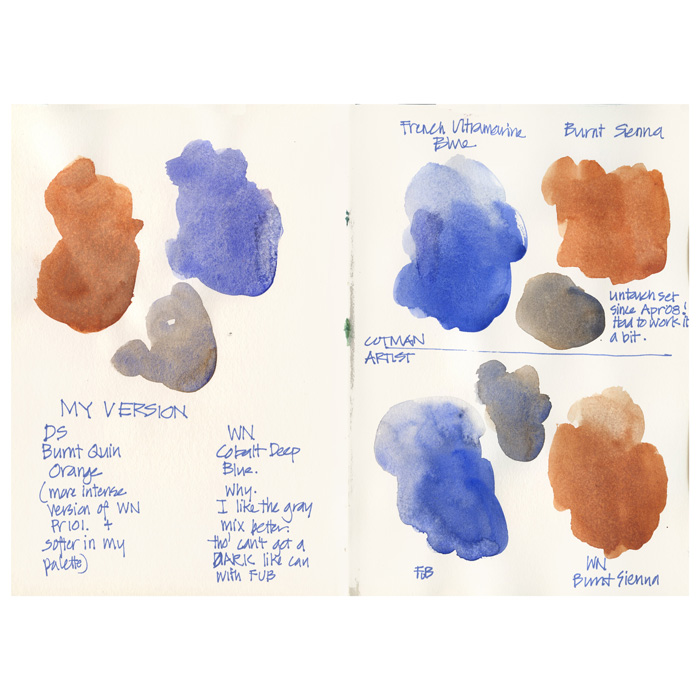 MY VERSION
DS
Burnt Quin
Orange
(more intense
version of WN
Pr101. +
softer in my
palette)
WN
Cobalt Deep
Blue.
Why.
I like the gray
mix better.
tho' can't get a
DARK like can
with FUB
French Ultramarine
Blue
Burnt Sienna
untouch set
since Apr 08!
Had to work it
a bit.
COTMAN
ARTIST
FUB
WN
Burnt Sienna